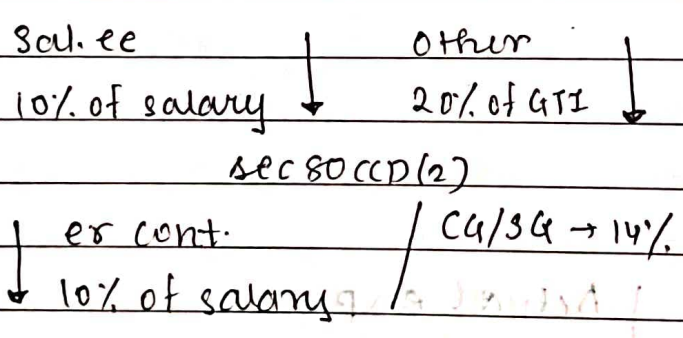 Sal. ee ↓ Other ↓
10% of salary 20% of GTI
sec 80 CCD(2)
↓ er cont. / CG/SG → 14%
10% of salary